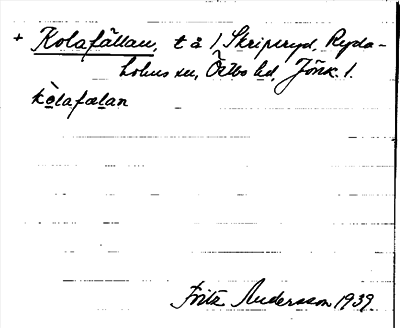 + Kolafällan, t å 1 Skriperyd, Ryda-
holms sn, Östbo hd, Jönk. l.
kòlafælan
Fritz Andersson 1939.